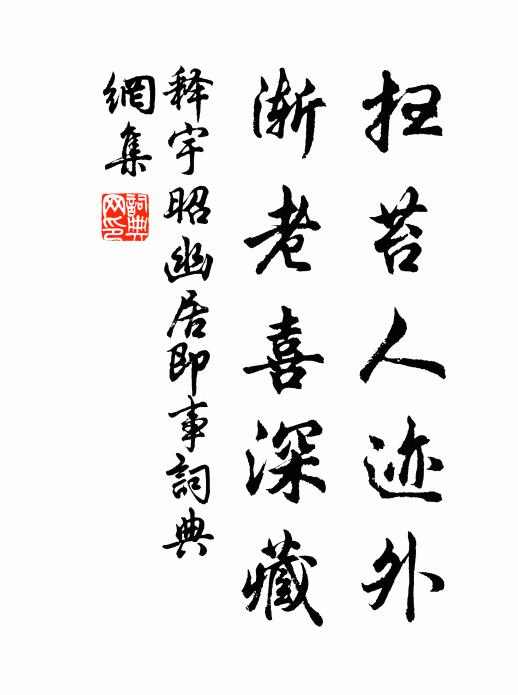 扫苔人迹外
渐老喜深藏
释宇昭幽居即事詞典
網集
詞典网印